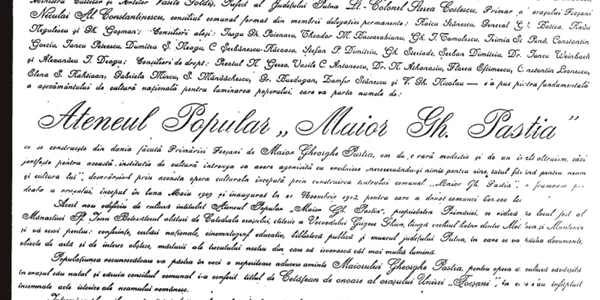 Ministru Cultelor și Artelor Vasile Goldiș, Prefect al Județului Putna Lt. Colonel Perca Costescu, Primar a orașului Focșani
Neculai Al. Constantinescu, consiliul comunal format din membrii delegației permanente: Raicu Stănescu, General G. L. Botica, Radu
Negulescu și Gh. Goșman; Consilieri aleși: Iorgu Gh. Poinaru, Theodor M. Basarabianu, Gh. I. Comulescu, Irimia St. Rînd, Constantin
Gorciu, Iancu Petrescu, Dumitru S. Neagu, C. Șerbănescu-Râcoasa, Ștefan P. Dimitriu, Gh. Steriade, Șerban Dimitriu, Dr. Iancu Weinbach
și Alexandru I. Dragu; Consilieri de drept: Preotul N. Gerea, Vasile C. Antonescu, Dr. N. Athanasiu, Florea Eftimescu, Constantin Leonescu,
Elena S. Kahtiaan, Gabriela Mircu, S. Mandăchescu, Gr. Burdugan, Damfir Stănescu și V. Gh. Nicolau — s'a pus piatra fundamentală
a așezământului de cultură națională pentru luminarea poporului, care va purta numele de:
Ateneul Popular „Maior Gh. Pastia"
ce se construește din dania făcută Primăriei Focșani de Maior Gheorghe Pastia, om de o rară modestie și de un înalt altruism, căci
jertfește pentru această instituție de cultură întreaga sa avere agonisită cu vrednicie, nesocotindu-și nimic pentru sine, totul fiind pentru neam
și cultura lui", desăvârșind prin aceasta opera culturală începută prin construirea teatrului comunal „Maior Gh. Pastia", o frumoasă po-
doabă a orașului, început în luna Maiu 1909 și inaugurat la 21 Noembrie 1913, pentru care a donat comunei 600.000 lei
Acest nou edificiu de cultură intitulat Ateneul Popular „Maior Gh. Pastia", proprietatea Primăriei, se ridică pe locul fost al
Mânăstirii Sf. Ioan Botezătorul alăturea de Catedrala orașului, ctitoria a Voevodului Grigore Ghica, lângă vechiul hotar dintre Moldova și Muntenia
și va servi pentru: conferințe, serbări naționale, cinematograf educativ, bibliotecă publică și muzeul județului Putna, în care se va păstra documente,
obiecte de artă și de interes obștesc, mărturii ale trecutului nostru din care să izvorească cât mai multă lumină.
Populațiunea recunoscătoare va păstra în veci o nepieritoare aducere aminte Maiorului Gheorghe Pastia, pentru opera de cultură săvârșită
în orașul său natal și căruia consiliul comunal i-a conferit titlul de Cetățean de onoare al orașului Unirei „Focșani", în care s'au înfăptuit
însemnate acte istorice ale neamului românesc.